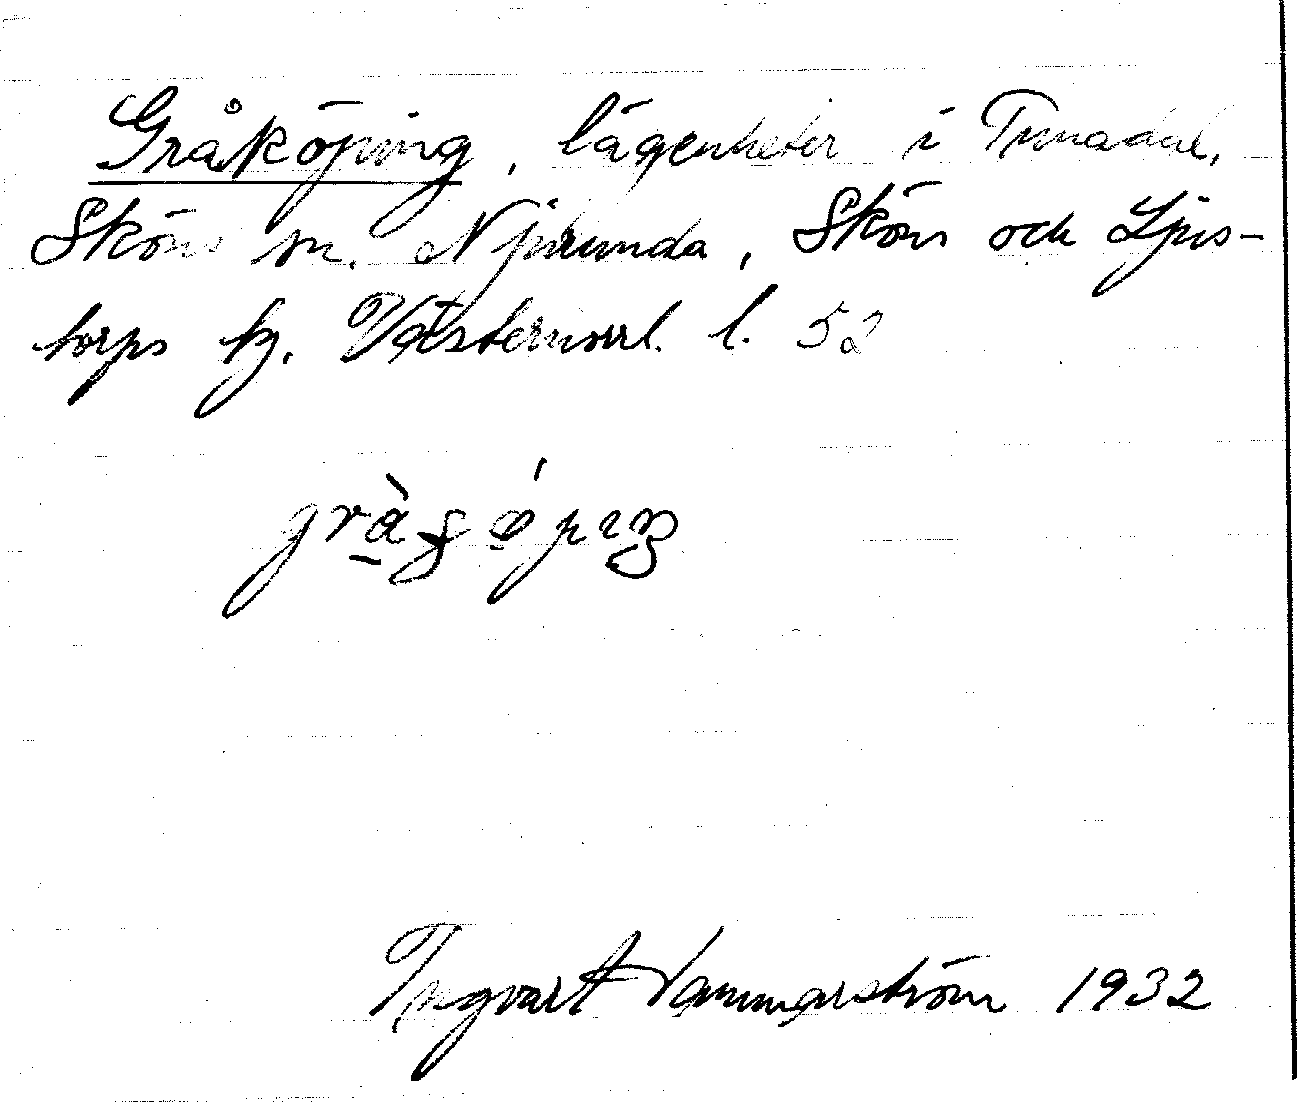 Gråköping, lägenheter i Tunadal,
Sköns sn. Njurunda, Sköns och Ljus-
torps tg. Västernorrl. l. 52
Ingvart Hammarström 1932